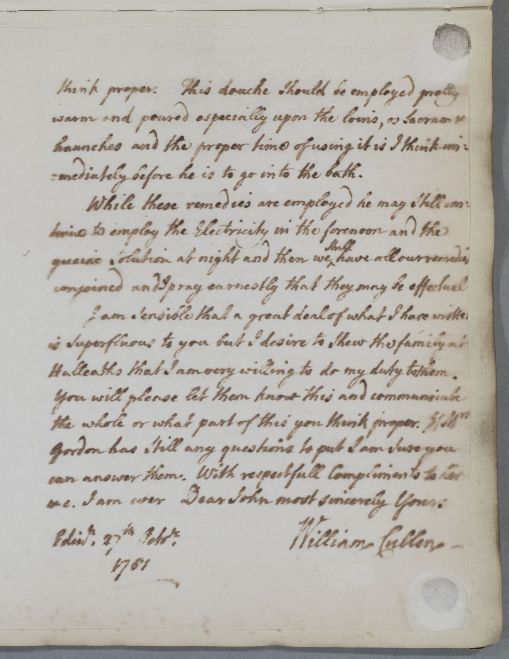 think proper. This douche should be employed pretty
warm and poured especially upon the loins, os Sacrum &
haunches and the proper time of using it is I think im-
-mediately before he is to go into the bath.
While these remedies are employed he may still con-
to employ the Electricity in the forenoon and the
guaiac Solution at night and then we shall have all our remedies
conjoined and I pray earnestly that they may be effectual
I am Sensible that a great deal of what I have written
is Superfluous to you but I desire to Shew the family at
Halleaths that I am very willing to do my duty to them.
You will please let them know this and communicate
the whole or what part of this you think proper. If Mrs
Gordon has Still any questions to put I am Sure you
can answer them. With respectfull Compliments to her
&c. I am ever Dear John most sincerely Yours
Edinr. 27th Febr.
1781
William Cullen